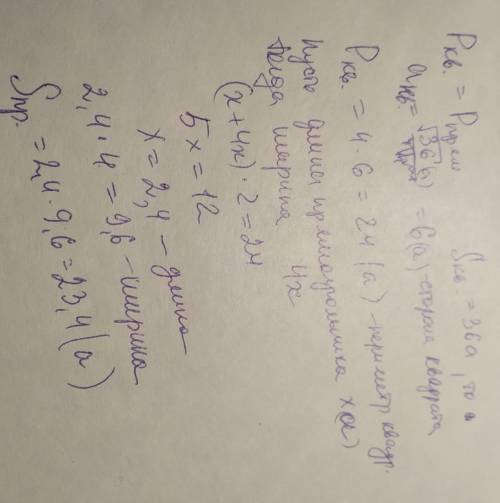 Pкв. = Pпрям Sкв. = 36а, то
aкв. = √36(а) = 6(а) - сторона квадрата
Pкв. = 4·6 = 24(а) - периметр квадр.
Пусть длина прямоугольника x(а)
тогда ширина 4x
(x+4x)·2=24
5x=12
x=2,4 - длина
2,4·4=9,6 - ширина
Sпр. = 2,4·9,6=23,4(а)